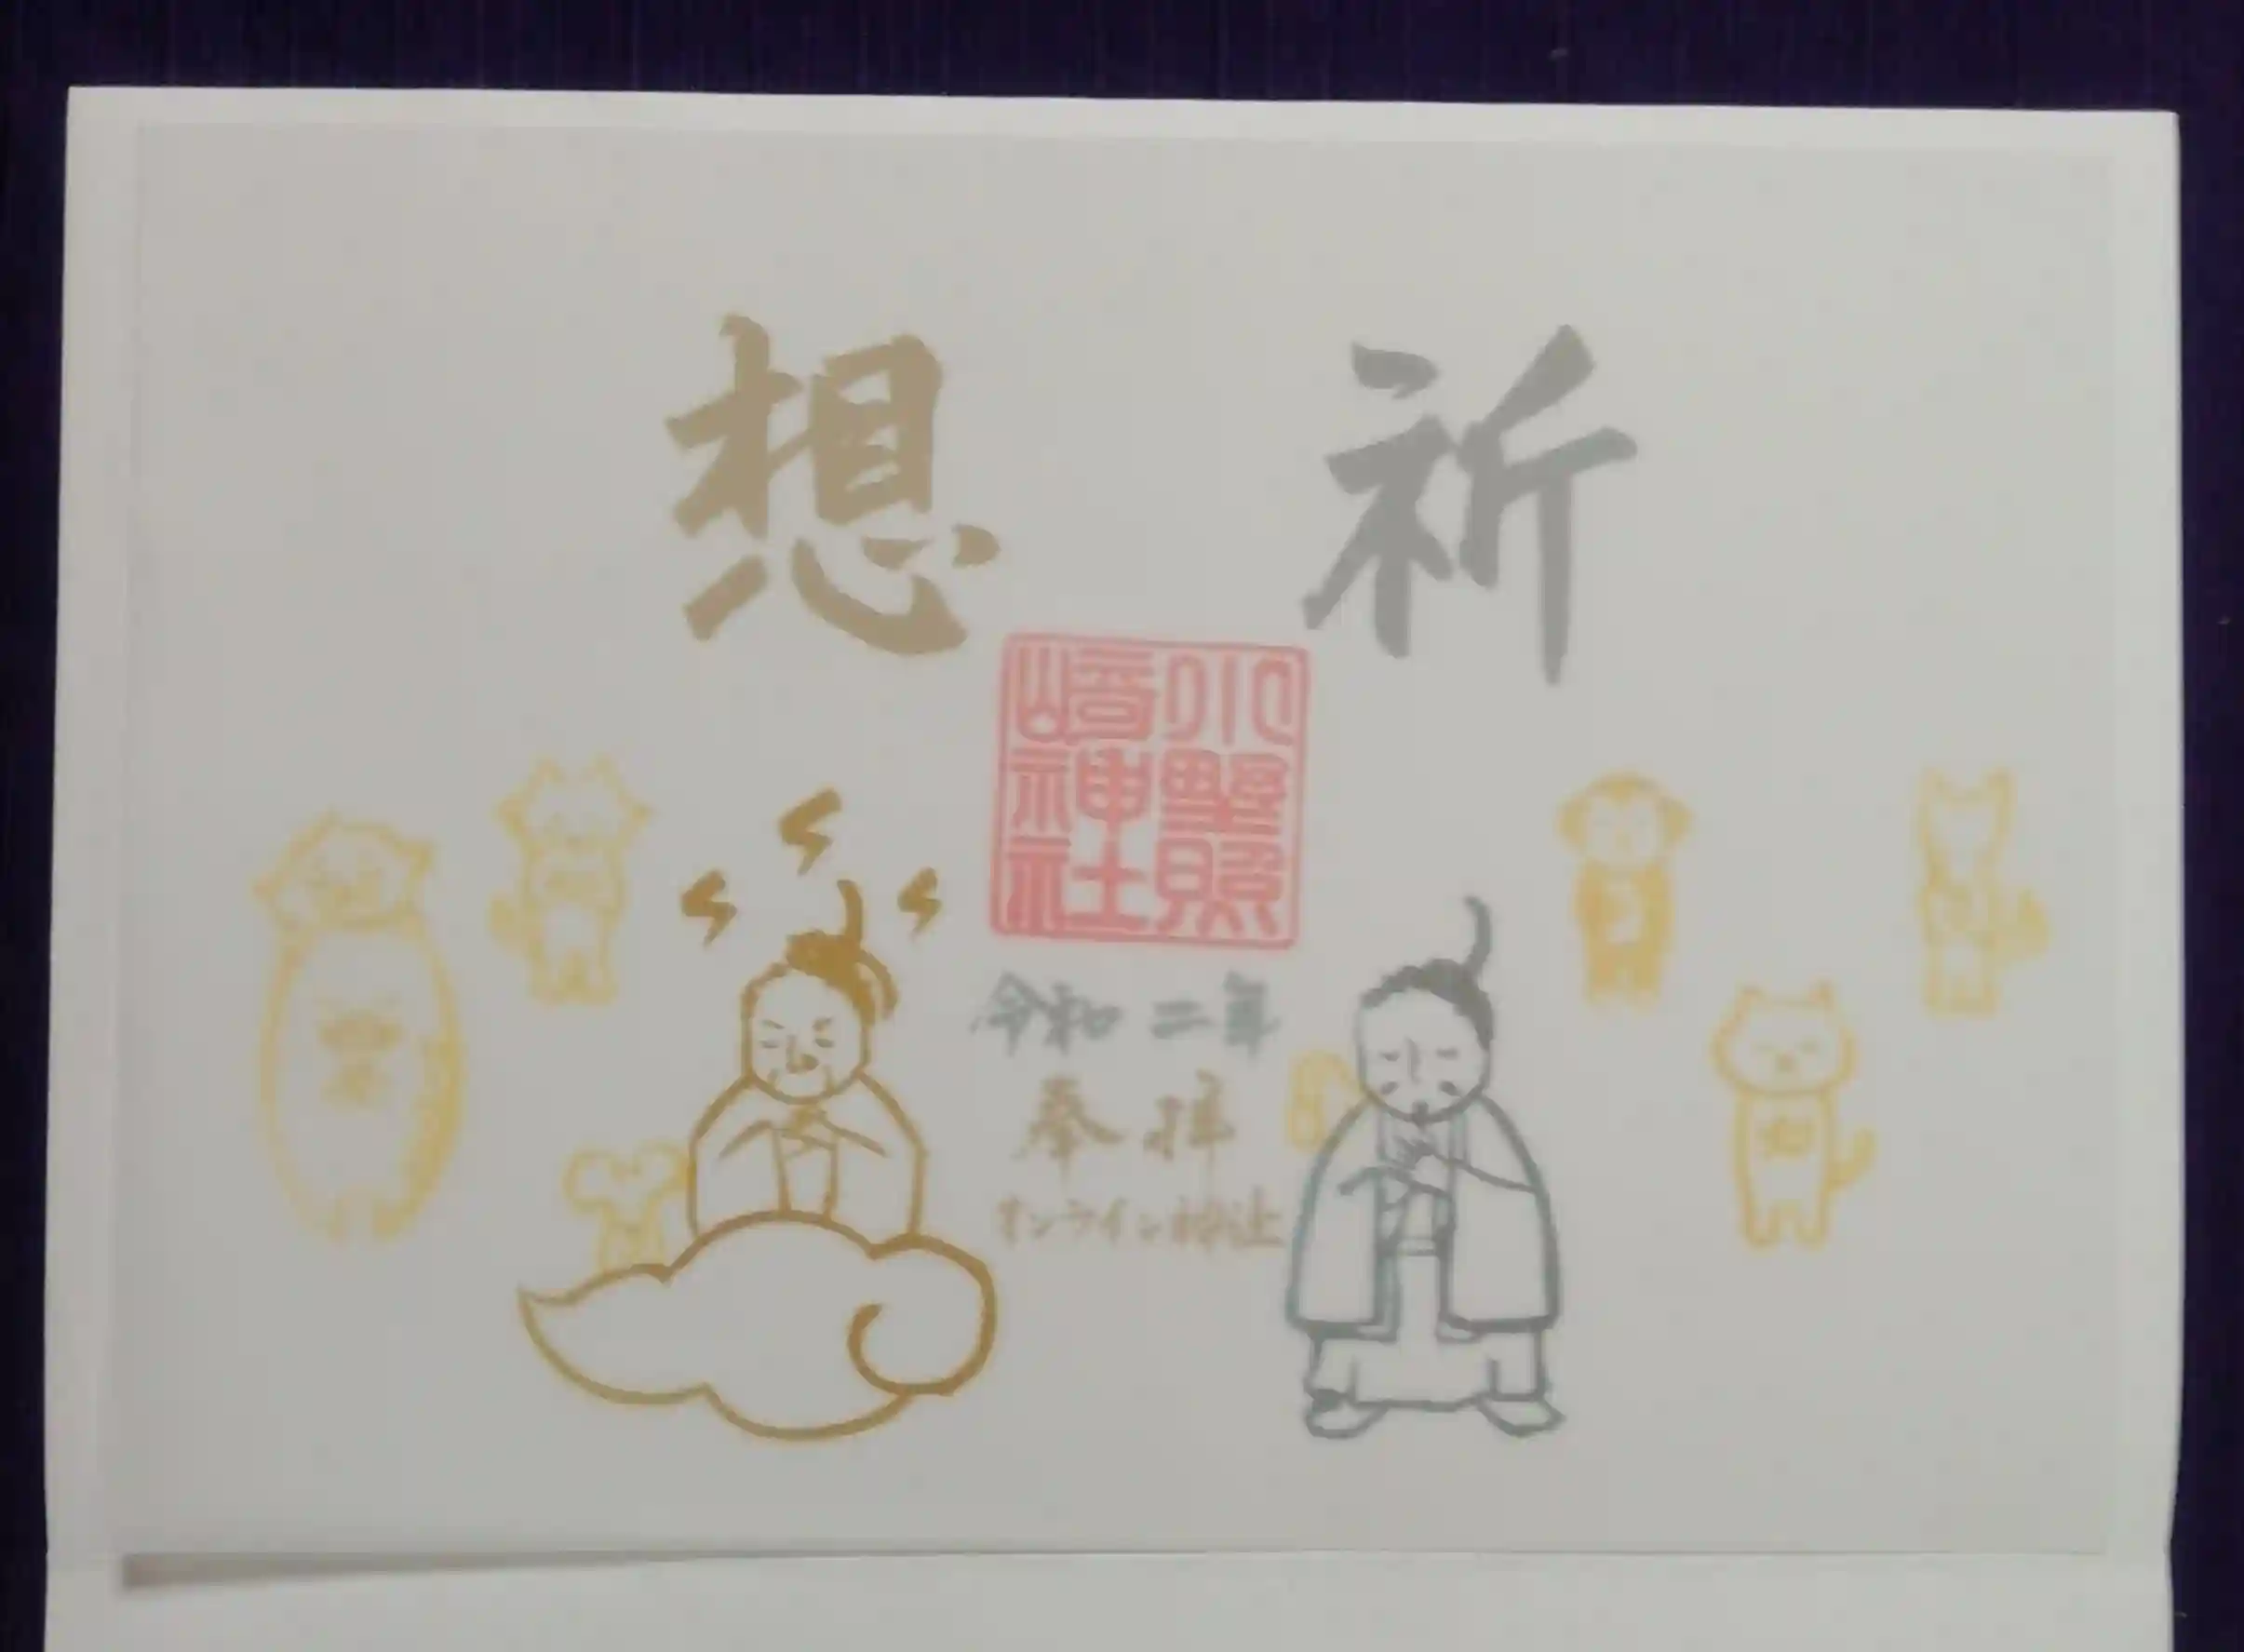 祈
想
小野照
崎神社
令和二年
奉拝
オンライン神社